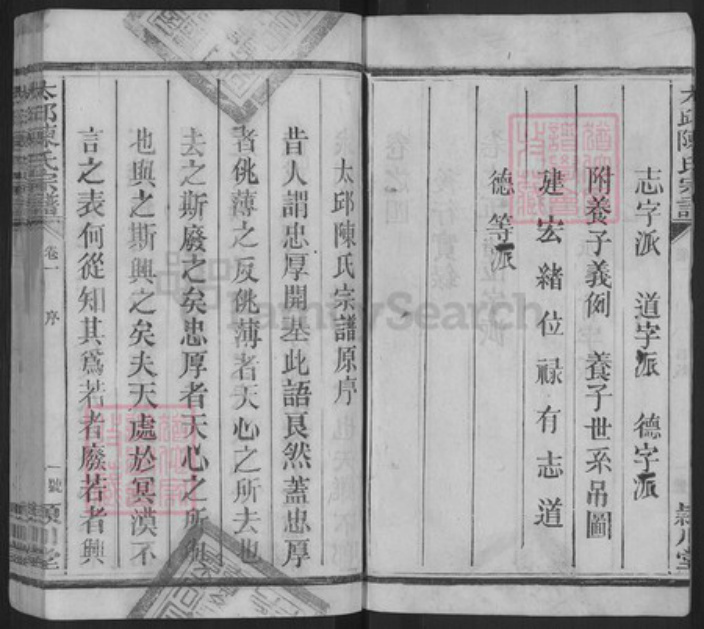 志字派 道字派 德字派
附養子義例 養子世系吊圖
建宏緒位祿有志道
德等派
太邱陳氏宗譜原序
昔人謂忠厚開基此語良然蓋忠厚
者佻薄之反佻薄者天心之所去也
去之斯廢之矣忠厚者天心之所與
也與之斯興之矣夫天處於冥漠不
言之表何從知其爲若者廢若者興
太邱陳氏宗譜
卷一
序
一號
潁川堂
FamilySearch